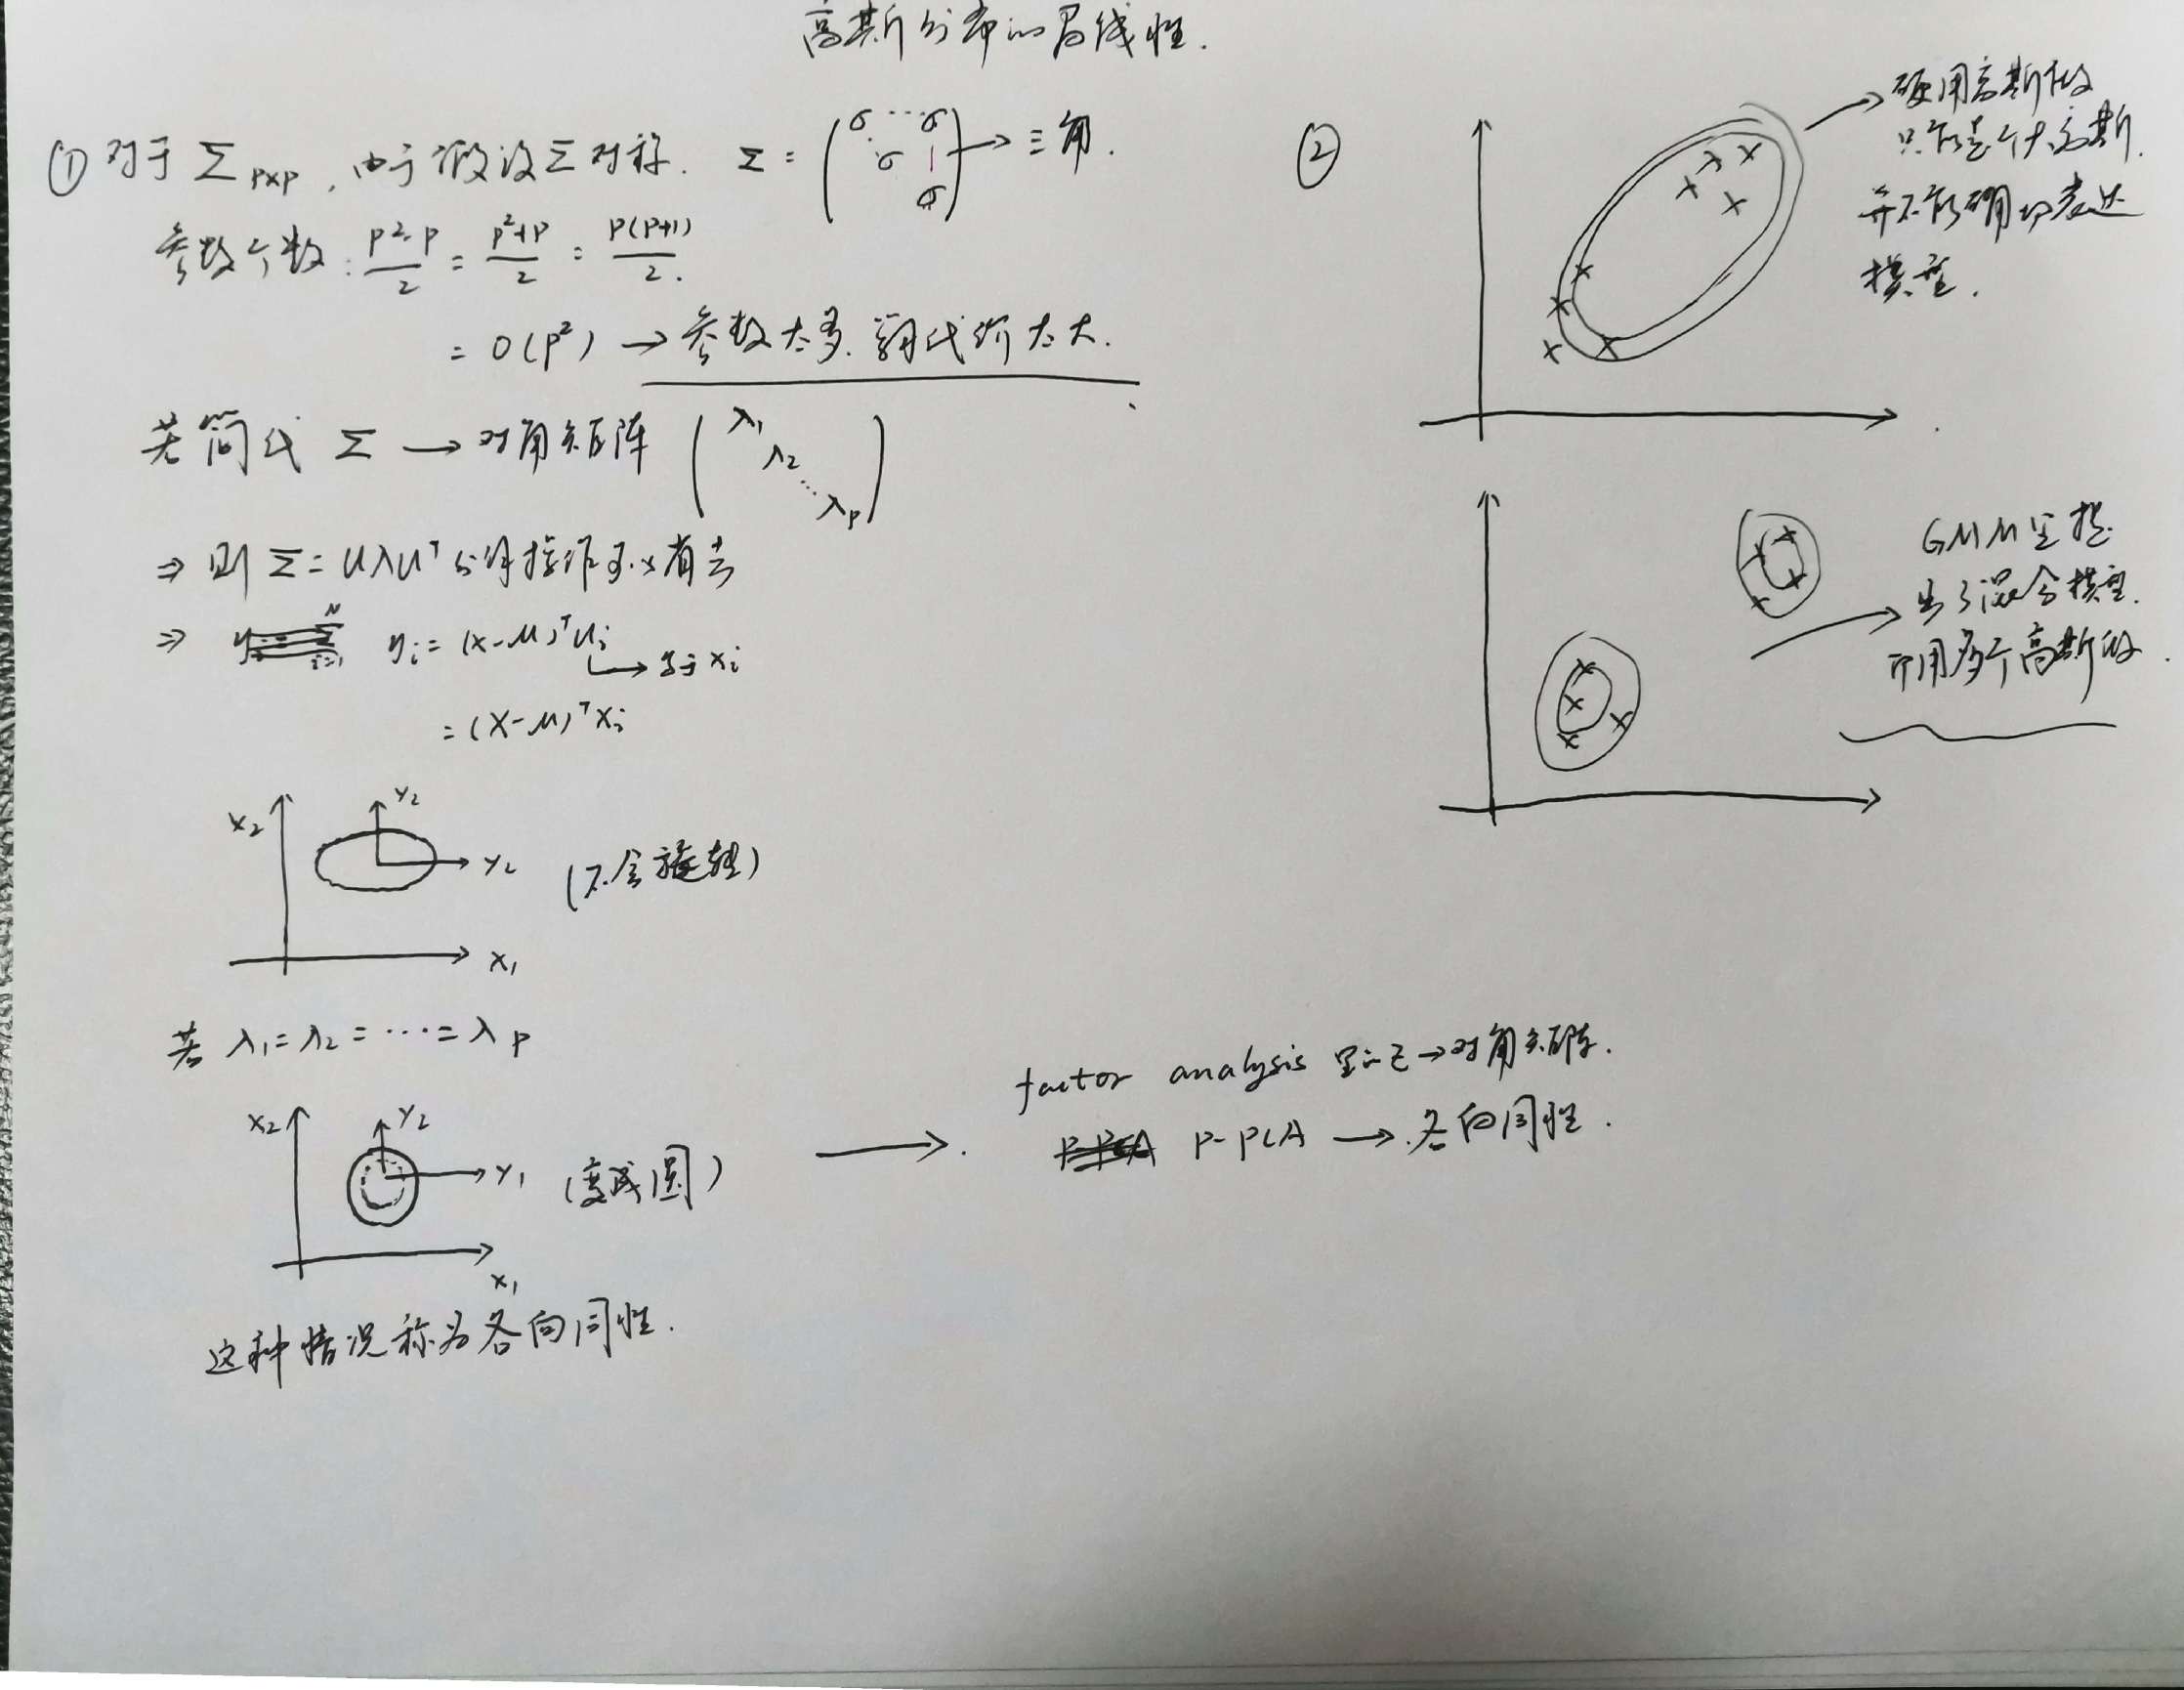 高斯分布的局线性.
① 对于 Σ p×p , 由于假设Σ对称. Σ = ( σ ⋯ σ σ σ ) → 三角.
参数个数: p²-p/2 = p²+p/2 = p(p+1)/2.
= O(p²) → 参数太多. 代价太大.
若简化 Σ → 对角矩阵 ( λ₁ λ₂ ⋯ λp )
⇒ 则 Σ = UλUᵀ 分解操作可以省去
⇒ yᵢ = (x-μ)ᵀuᵢ
↳ 等于 xᵢ
= (x-μ)ᵀxᵢ
x₂ y₂
y₂ (不会旋转)
x₁
若 λ₁ = λ₂ = ⋯ = λp
x₂ y₂
y₁ (变成圆) →.
x₁
这种情况称为各向同性.
factor analysis 里的 z → 对角矩阵.
P-PCA → 各向同性.
②
→ 硬用高斯做
只能是个大高斯.
并不能确切表达
模型.
GMM里提
出了混合模型.
可用多个高斯做.